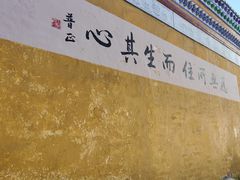 應無所住而生其心
普正